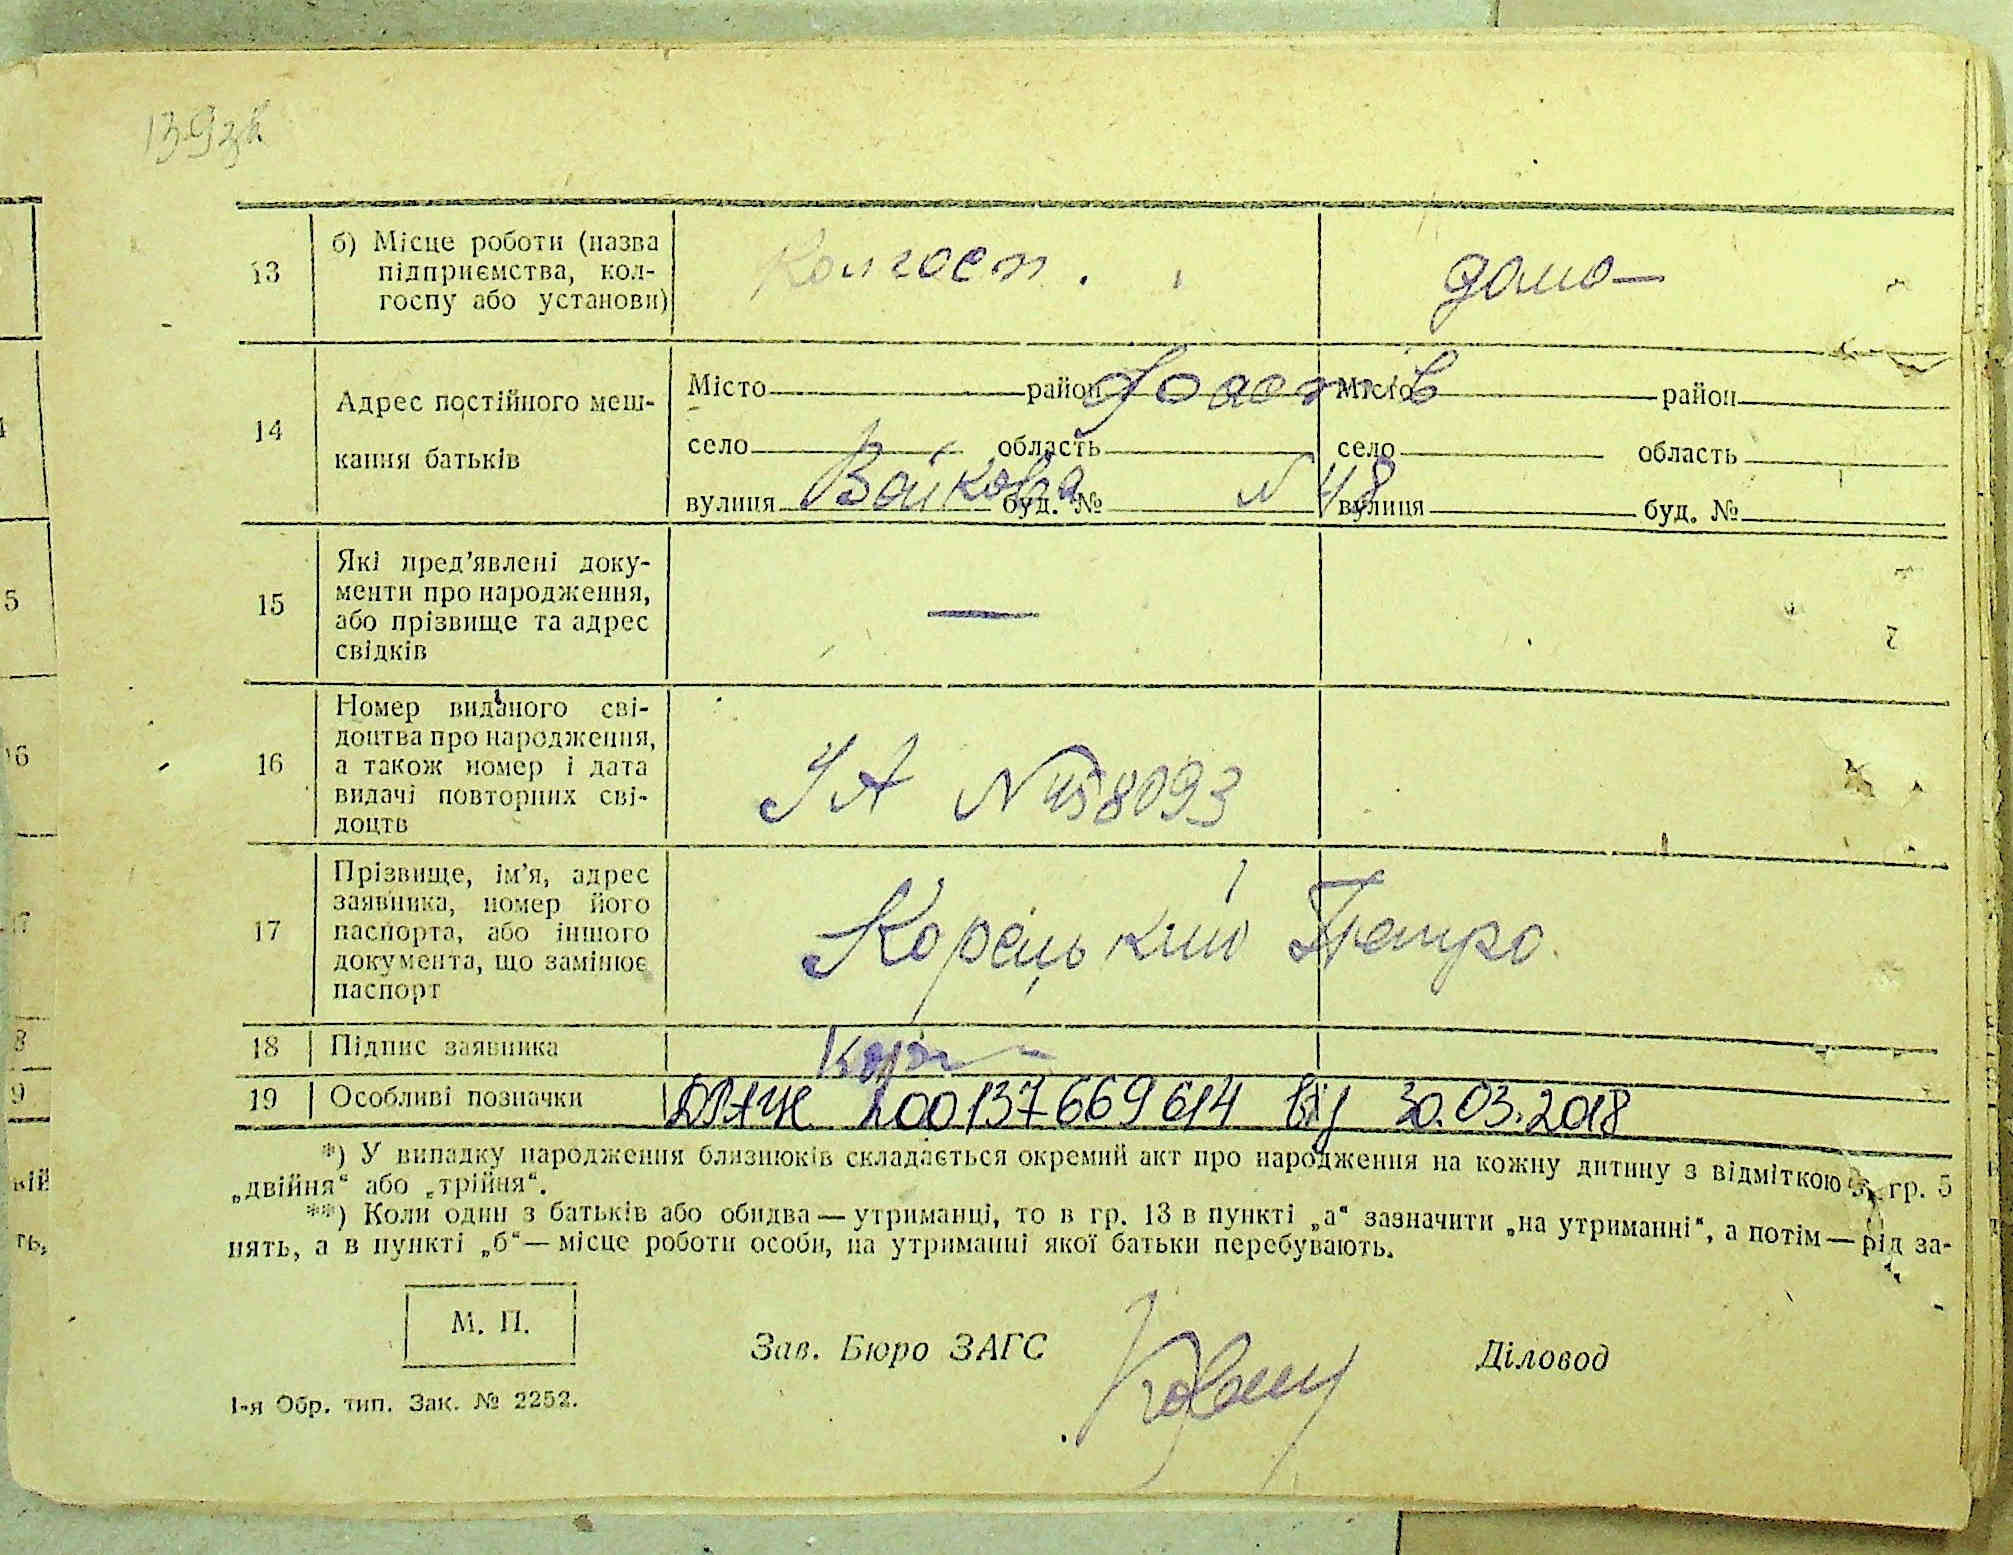 139зв
13 б) Місце роботи (назва підприємства, кол-госпу або установи) Колгосп. домо—
14 Адрес постійного меш-кання батьків
Місто район Фастів Місто район
село область село область
вулиця Войкова буд. № N 48 вулиця буд. №
15 Які пред'явлені доку-
менти про народження,
або прізвище та адрес
свідків —
16 Номер виданого сві-
доцтва про народження,
а також номер і дата
видачі повторних сві-
доцтв
УА N 458093
17 Прізвище, ім'я, адрес
заявника, номер його
паспорта, або іншого
документа, що замінює
паспорт
Корецький Петро.
18 Підпис заявника
19 Особливі позначки 200137669614 від 30.03.2018
*) У випадку народження близнюків складається окремий акт про народження на кожну дитину з відміткою в гр. 5
„двійня“ або „трійня“.
**) Коли один з батьків або обидва — утриманці, то в гр. 13 в пункті „а“ зазначити „на утриманні“, а потім — рід за-
нять, а в пункті „б“ — місце роботи особи, на утриманні якої батьки перебувають.
М. П.
Зав. Бюро ЗАГС
Діловод
1-я Обр. тип. Зак. № 2252.